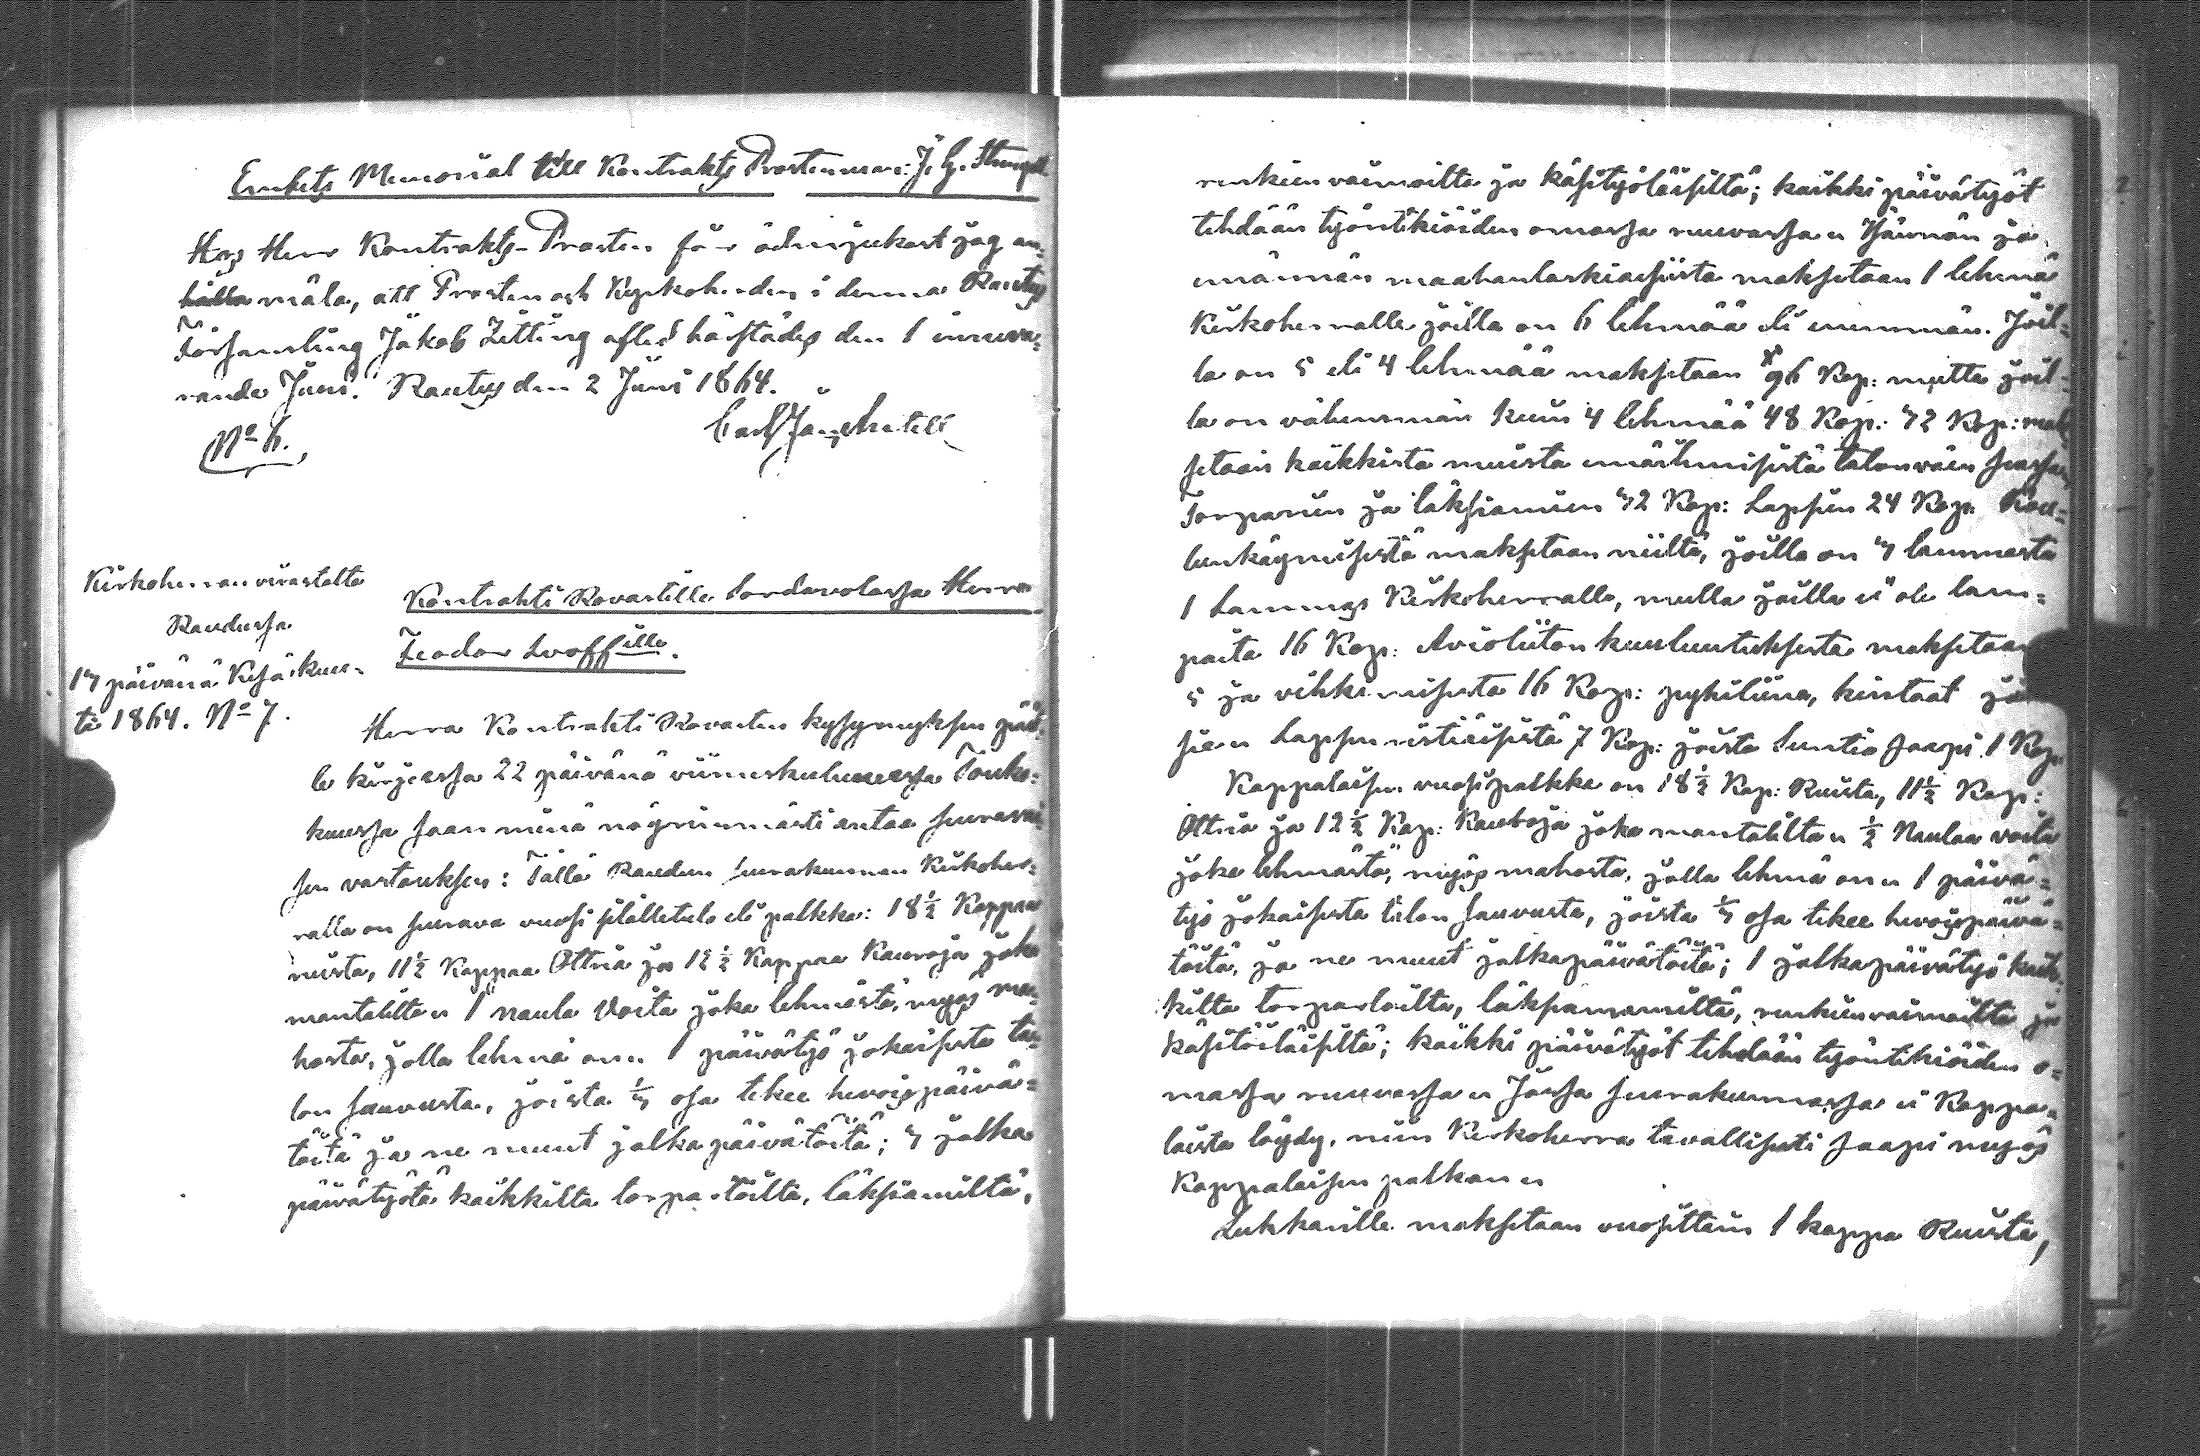 Embets Memorial till Kontrakts Prosten m.m: J. G.
Hos Herr Kontrakts-Prosten får ödmjukast jag an-
hålla mäla, att Prosten och Kyrkoherden i denna Rautus
Församling Jakob Zitting afled härstädes den 1 inneva-
rande Juni. Rautus den 2 Juni 1864.
Carl
No 6.
Kirkoherran virastolta
Raudussa
17 päivänä Kesäkuu-
ta 1864. No 7.
Kontrahti Rovastille Sordavalassa Herra
Teodor Lvoffille.
Herra Kontrahti Rovastin kysymyksen pääl-
le kirjeessä 22 päivänä viimeskuluneessa Touko-
kuussa saan minä nöyrimmästi antaa seuraavai-
sen vastauksen: Tällä Raudun seurakunnan Kirkoher-
ralla on seurava vuosi sisälletulo eli palkka: 18½ Kappaa
ruista, 11½ Kappaa Ottria ja 12½ Kappaa Kauroja joka
mantalilta 1 naula Voita joka lehmästä, myös ma-
hosta, jolla lehmä on 1 päivätyö jokaisesta ta-
lon sauvusta, joista 1/7 osa tekee hevoispäivä-
töitä ja ne muut jalkapäivätöitä; 7 jalka
päivätyötä kaikkilta torparloilta, läksiamiltä,
renkienvaimoilta ja käsityöläisiltä; kaikki päivätyöt
tehdään työntekiöiden omassa ruuvassa Isännän ja
emännän maahanlaskiaisista maksetaan 1 lehmä
Kirkoherralle joilla on 6 lehmää eli enemmän. Joil-
la on 5 eli 4 lehmää maksetaan 96 Kop: mutta joil-
la on vähemmän kuin 4 lehmää 48 Kop: 72 Kop: mak-
setaan kaikkista muista imeihmisistä talonväen
Torparien ja läksiamien 72 Kop: Lapsen 24 Kop.
lunkäymisestä maksetaan niiltä, joilla on 7 lammasta
1 Lammas Kirkoherralle, mutta joilla ei ole lam-
paita 16 Kop: Avioliiton kuuluutuksesta maksetaan
5 ja vihkimisestä 16 Kop: pyhiliina, kintaat
Lapsen ristiäisistä 7 Kop: joista Suntio saapi 1 Kop.
Kappalaisen vuosipalkka on 18½ Kap: Ruista, 11½ Kap:
Ottria ja 12½ Kap: Kauroja joka mantalilta ½ Naulaa voita
joka lehmästä, myös mahosta, jolla lehmä on 1 päivä-
työ jokaisesta talon sauvusta, joista 1/7 osa tekee hevoispäivä-
töitä, ja ne muut jalkapäivätöitä; 1 jalkapäivätyö kaik-
kilta torparloilta, läksiamamiltä, renkienvaimoilta ja
käsitöiläisiltä; kaikki päivätyöt tehdään työntekiöiden o-
massa ruuvassa Jossa seurakunnassa ei Kappa-
laista löydy, niin Kirkoherra tavallisesti saapi myös
Kappalaisen palkan
Lukkarille maksetaan vuosittain 1 kappa Ruista,